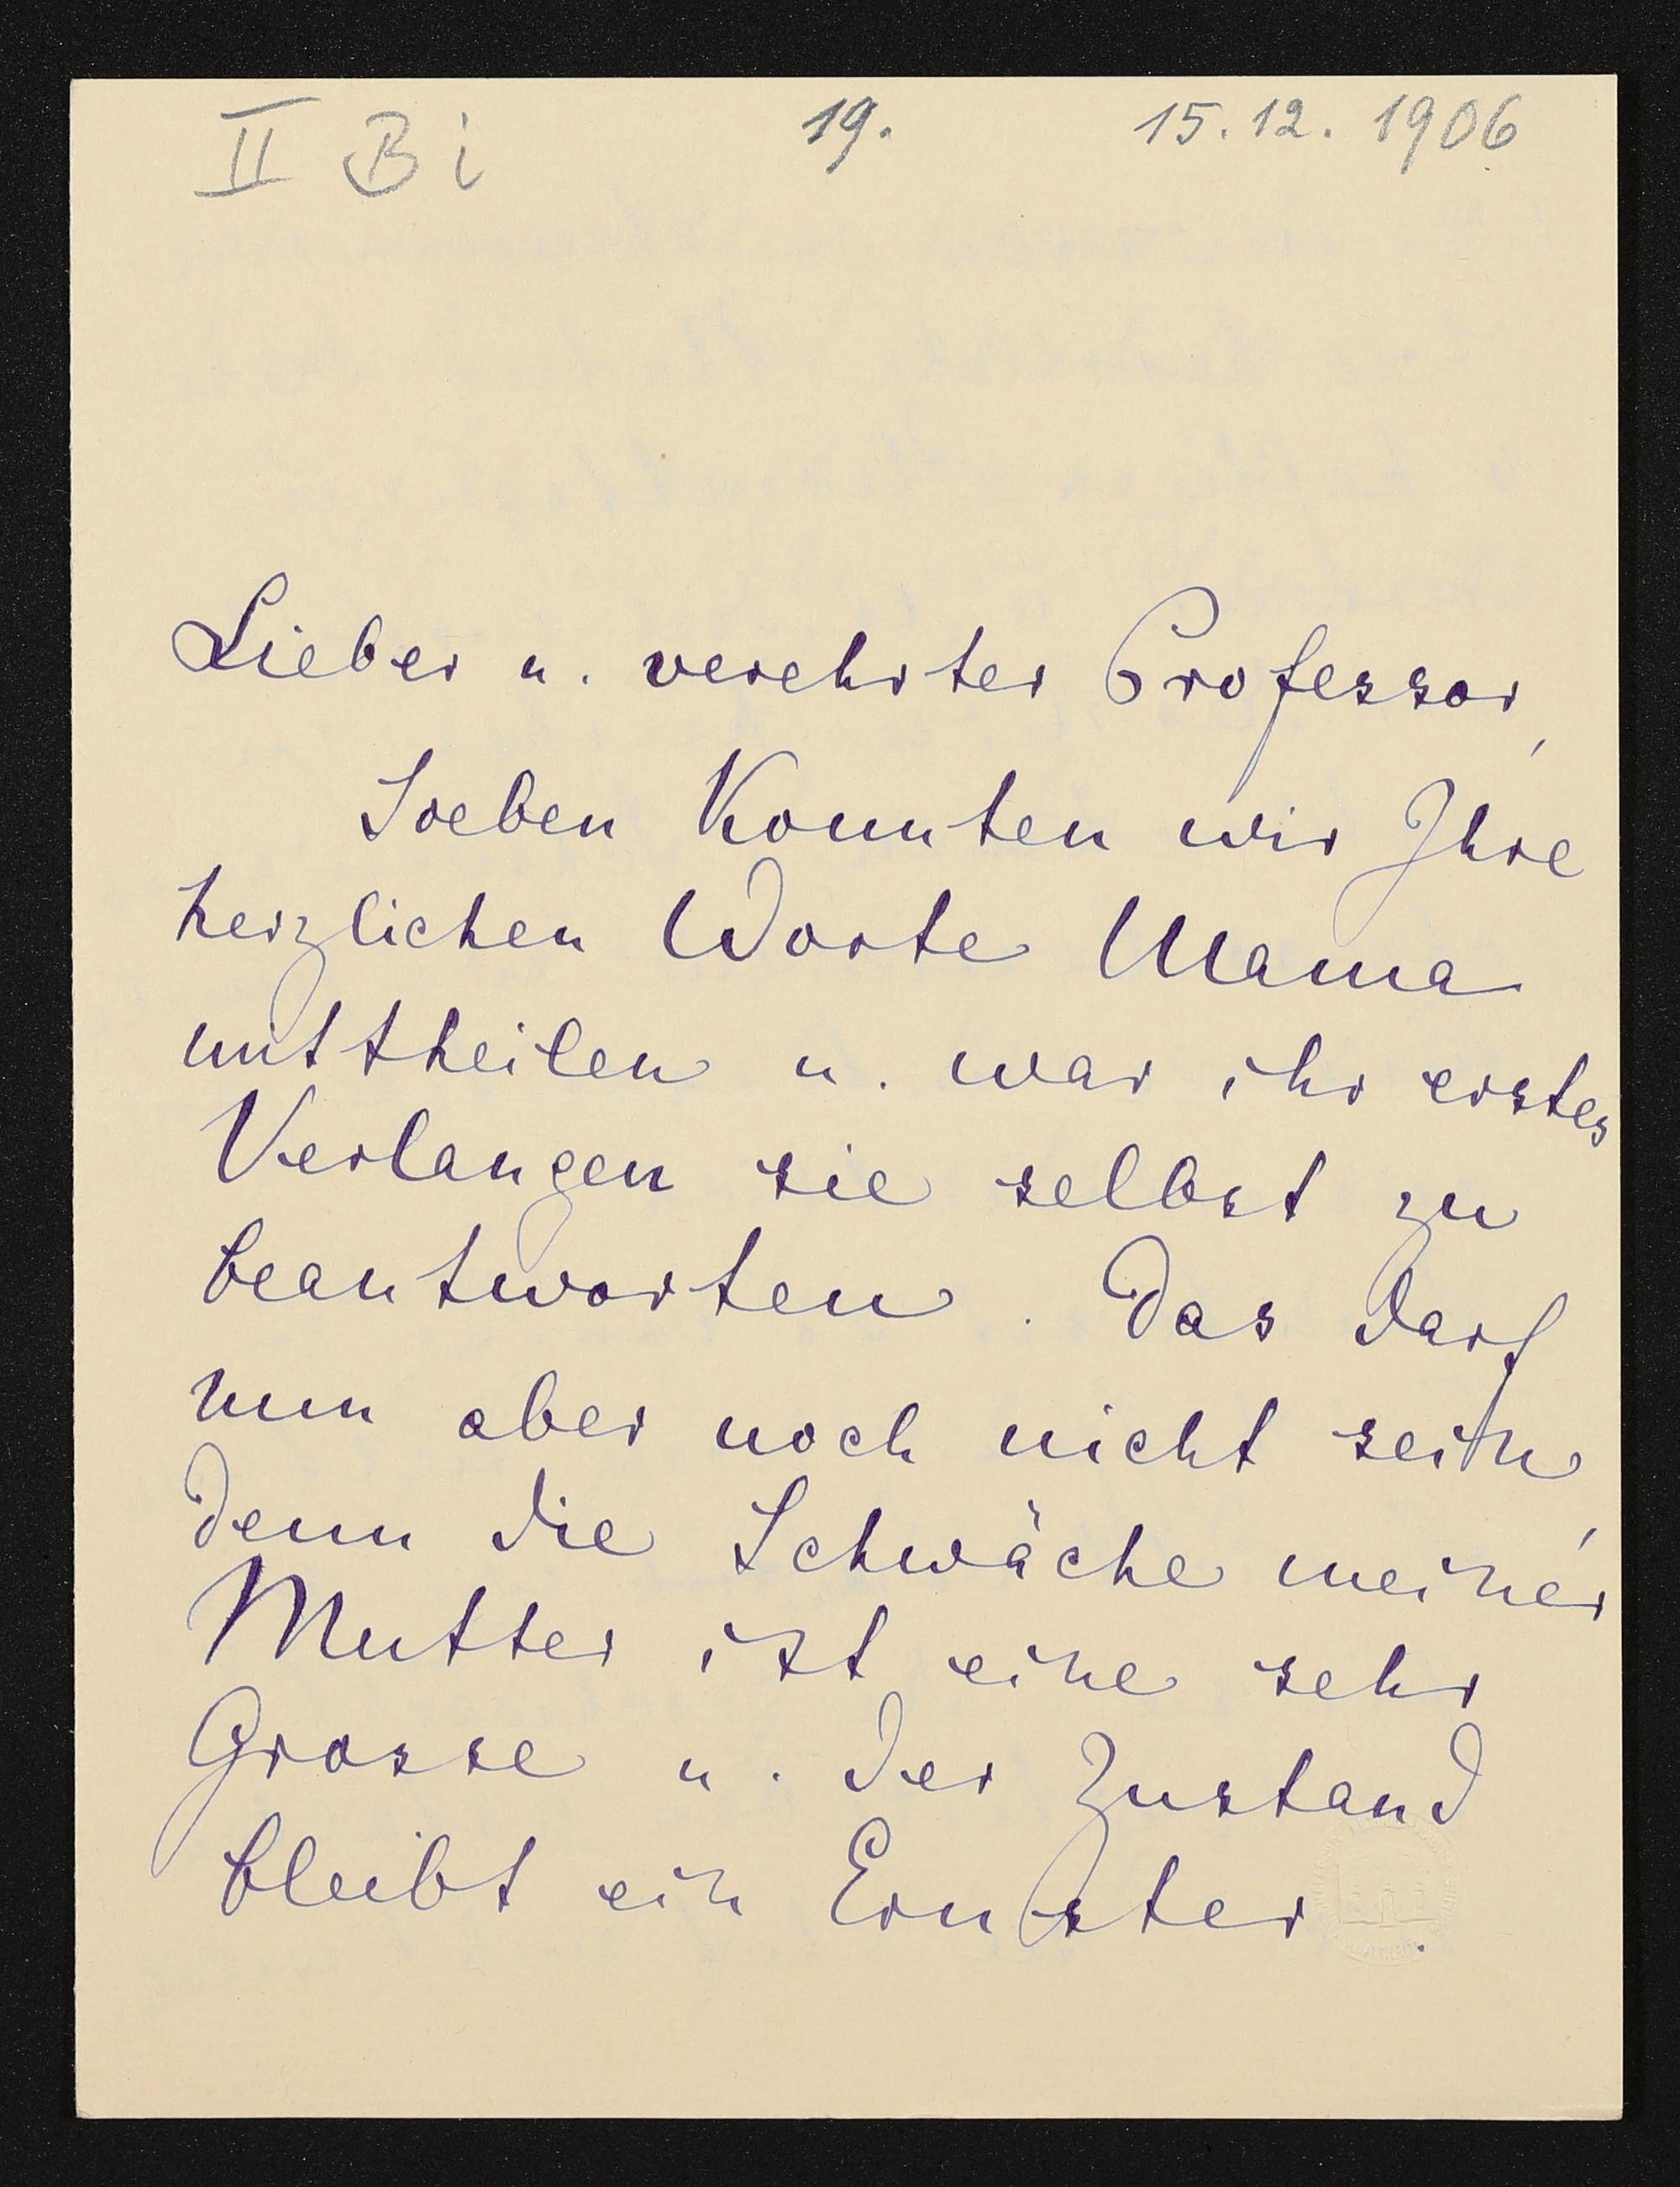 II Bi 19. 15.12.1906
Lieber u. verehrter Professor,
Soeben konnten wir Ihre
herzlichen Worte Mama
mittheilen u. war ihr erstes
Verlangen sie selbst zu
beantworten. Das darf
nun aber noch nicht sein,
denn die Schwäche meiner
Mutter ist eine sehr
Grosse u. der Zustand
bleibt ein Ernster.